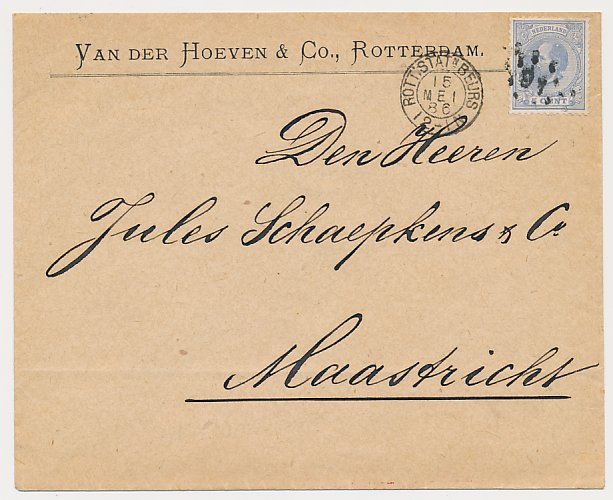 VAN DER HOEVEN & Co., ROTTERDAM.
NEDERLAND
5 CENT
ROTT: STATN BEURS
15
MEI
86
Den Heeren
Jules Schaepkens & Co
Maastricht